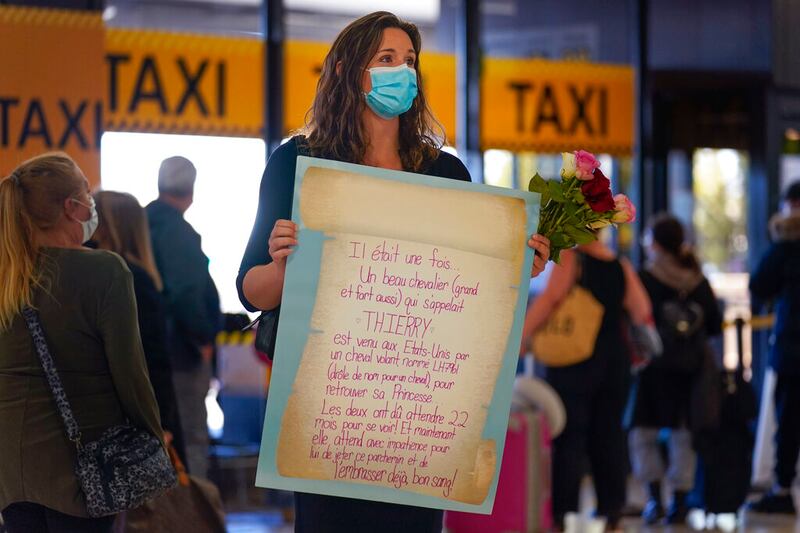 TAXI
TAXI
TAXI
Il était une fois...
Un beau chevalier (grand
et fort aussi) qui s'appelait
THIERRY
est venu aux Etats-Unis par
un cheval volant nommé LH7961
(drôle de nom pour un cheval) pour
retrouver sa Princesse.
Les deux ont dû attendre 22
mois pour se voir! Et maintenant
elle, attend avec impatience pour
lui de jeter ce parchemin et de
l'embrasser déjà, bon sang!